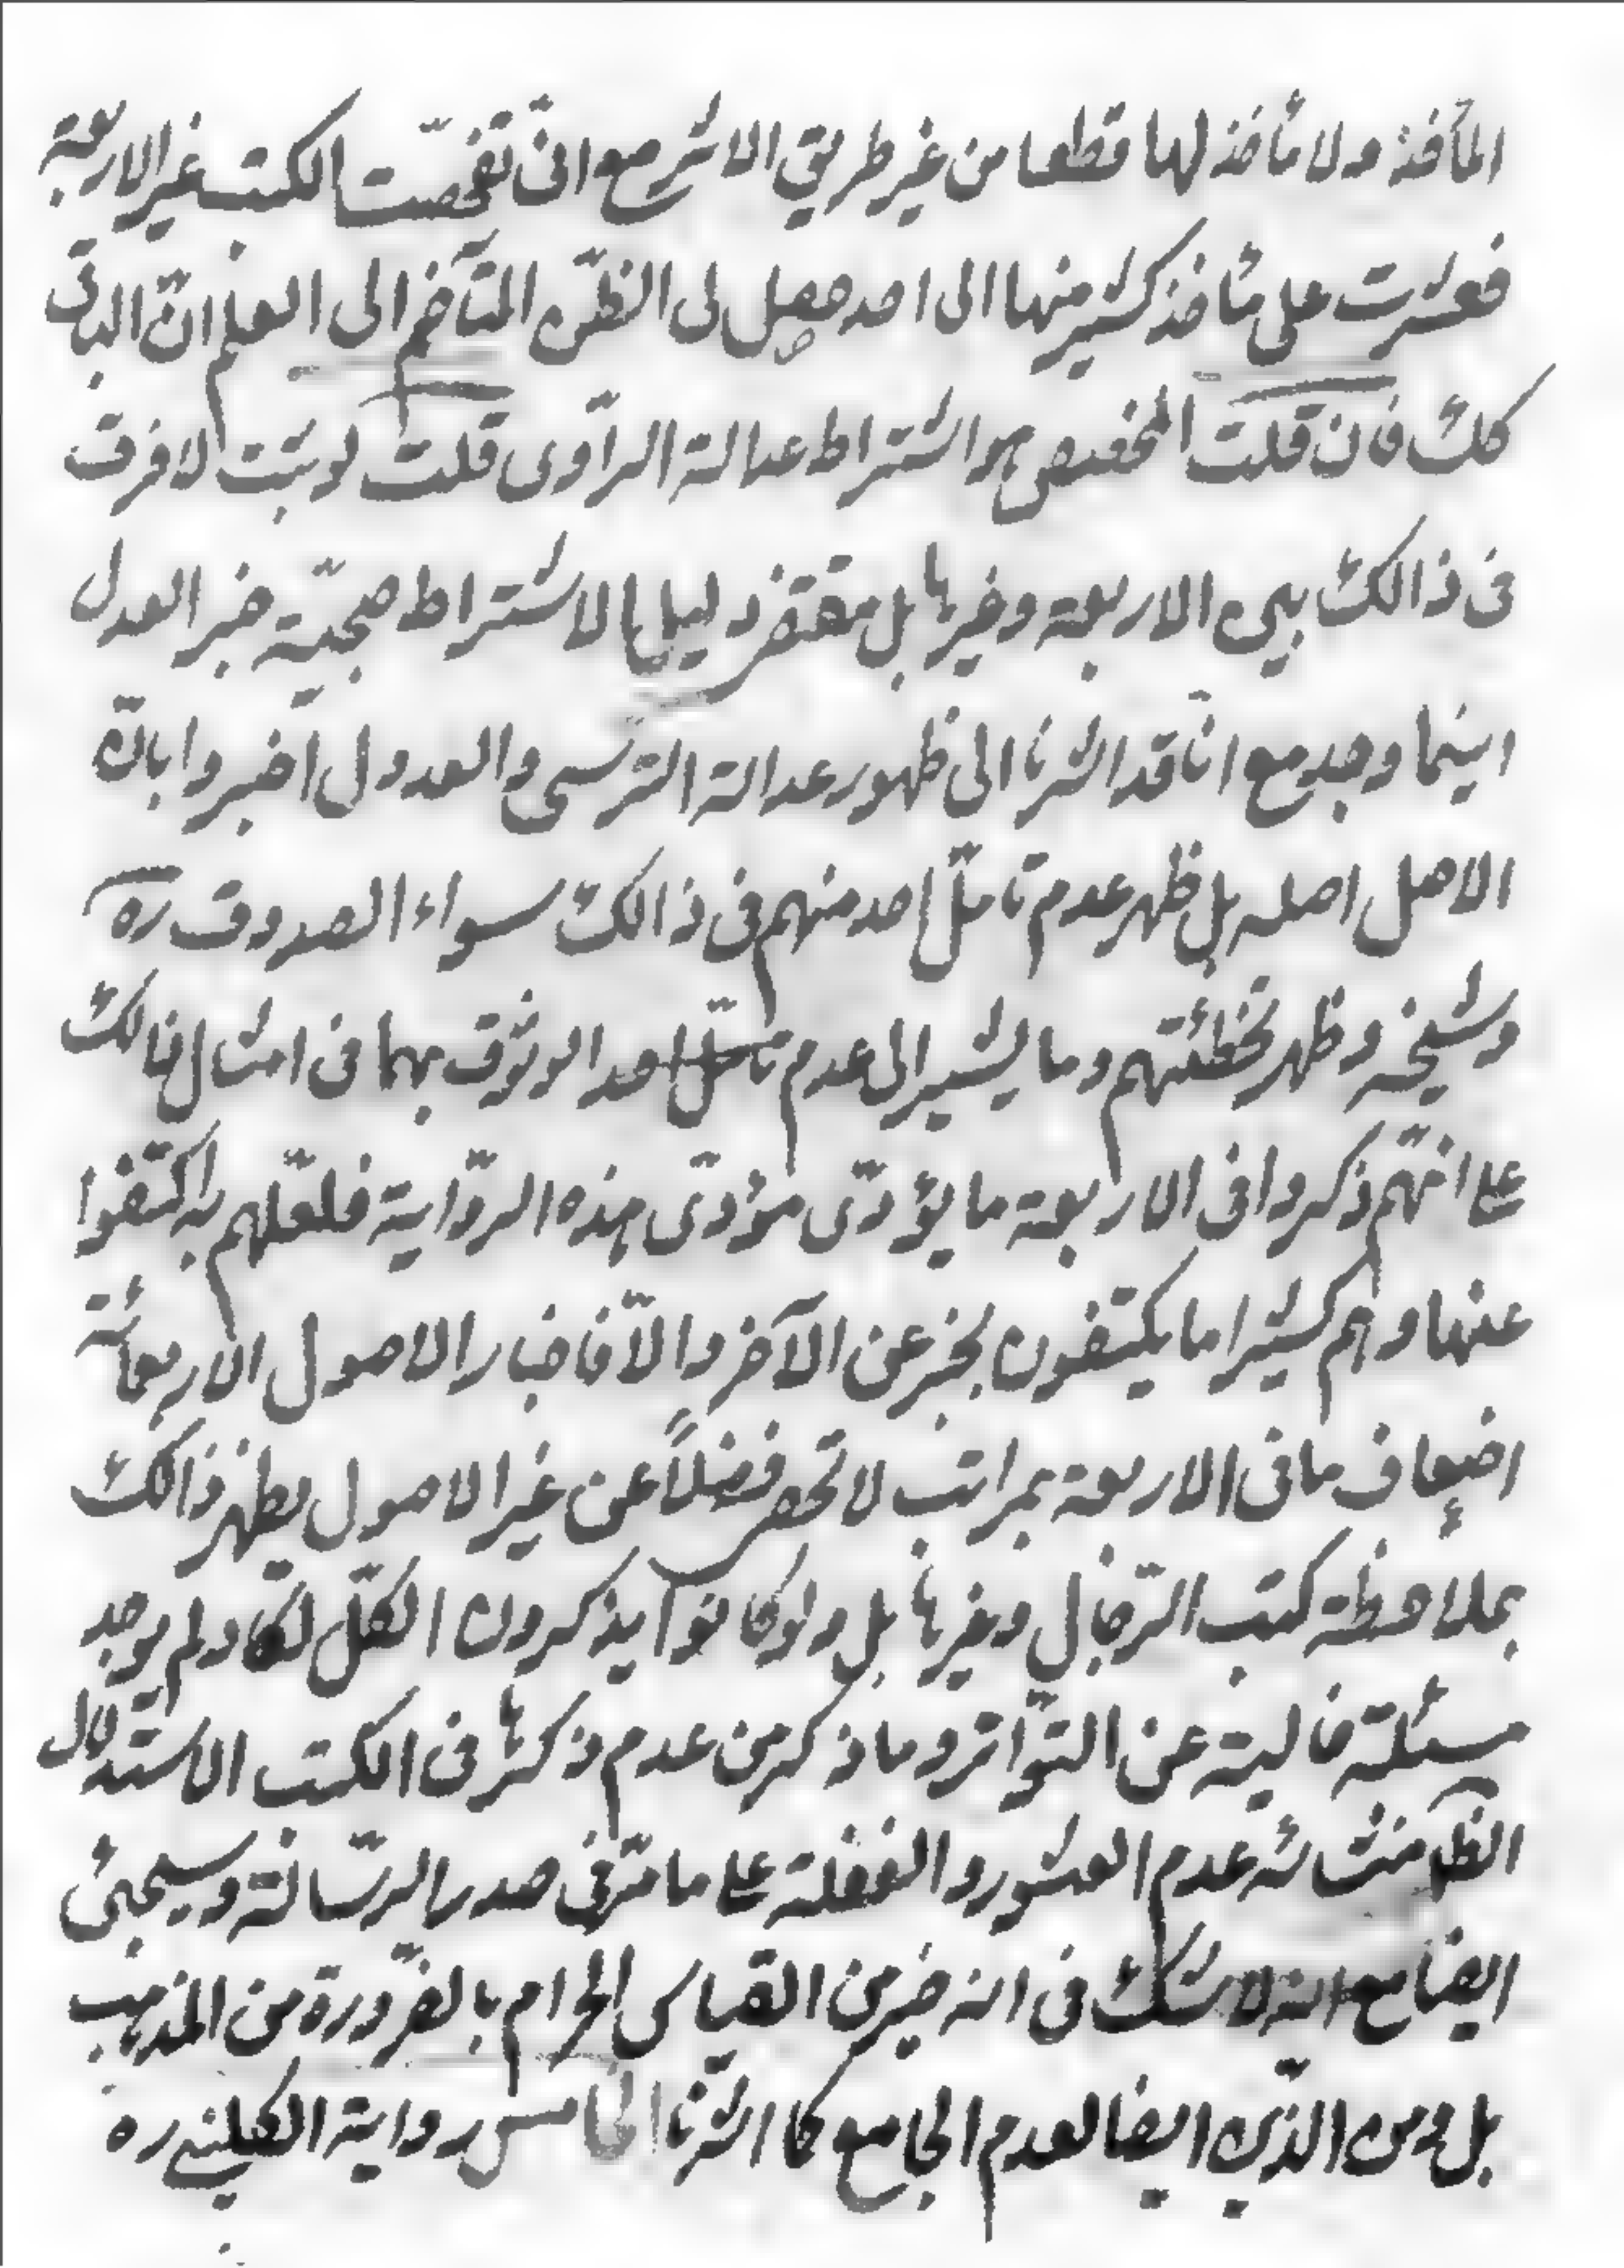 المأخذ ولا مأخذ لها قطعا من غير طريق الاثر مع انى تفحصّت الكتب غير الاربعة
فعثرت على مأخذ كثير منها الى احد حصل لى الظنّ المتآخم الى العلم انّ الباقى
كلك فان قلت المخصص هو اشتراط عدالة الراوى قلت لو ثبت لا فرق
فى ذالك بين الاربعة وغيرها بل مقتضى دليل الاشتراط حجيّة خبر العدل
اينما وجد مع انا قد اشرنا الى ظهور عدالة النرسى والعدول اخبروا بانّ
الاصل اصله بل ظهر عدم تامّل احد منهم فى ذالك سواء الصدوق ره
وشيخه وظهر تخطئتهم وما يشير الى عدم تامّل احد الوثوق بهما فى امثال ذالك
على انهّم ذكروا فى الاربعة ما يؤدّى مؤدّى هذه الروّاية فلعلّهم به اكتفوا
عنها وهم كثيرا ما يكتفون بخبر عن الآخر والاّ فاخبار الاصول الاربعمائة
اضعاف ما فى الاربعة بمراتب لا تحصى فضلاً عن غير الاصول يظهر ذالك
بملاحظة كتب الرّجال وغيرها بل ولو كانوا يذكرون الكلّ لكاد لم يوجد
مسئلة خالية عن التوّاتر وما ذكر من عدم ذكرها فى الكتب الاستدلال
الظ منشائه عدم العثور والغفلة على ما مرّ فى صدر الرسّالة وسيجئ
ايضا مع انه لا شك فى انه خير من القياس الحرام بالضرّورة من المذهب
بل ومن الدّين ايضا لعدم الجامع كما اشرنا الخامس رواية الكلينى ره